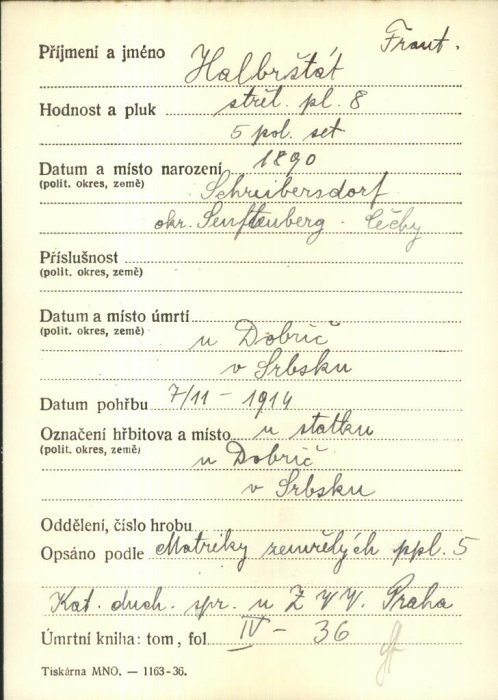 Frant.
Příjmení a jméno Halbrštát
Hodnost a pluk střel. pl. 8
5 pol. set
Datum a místo narození 1890
(polit. okres, země) Schreibersdorf
okr. Senftenberg - Čechy
Příslušnost
(polit. okres, země)
Datum a místo úmrtí
(polit. okres, země) u Dobrič
v Srbsku
Datum pohřbu 7/11 - 1914
Označení hřbitova a místo u statku
(polit. okres, země) u Dobrič
v Srbsku
Oddělení, číslo hrobu
Opsáno podle Matriky zemřelých ppl. 5
Kat. duch. spr. u Z V V. Praha
Úmrtní kniha: tom, fol. IV - 36
Tiskárna MNO. — 1163-36.